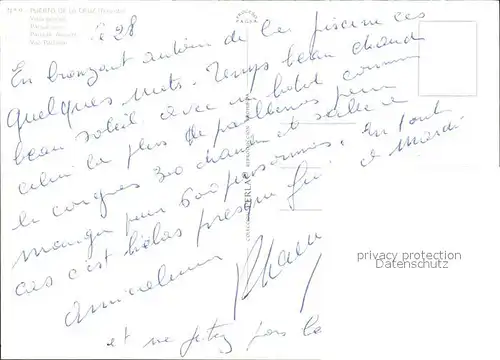 PUERTO DE LA CRUZ (Tenerife)
le 28
En bronzant autour de la piscine ces
quelques mots. Temps beau chaud
beau soleil avec un hotel comme
celui la plus de problèmes pour
le congrès 300 chambres et salle à
manger pour 600 personnes. En tout
cas c'est hélas presque fini. à Mardi
Amicalement
et ne jetez pas la
privacy protection
Datenschutz